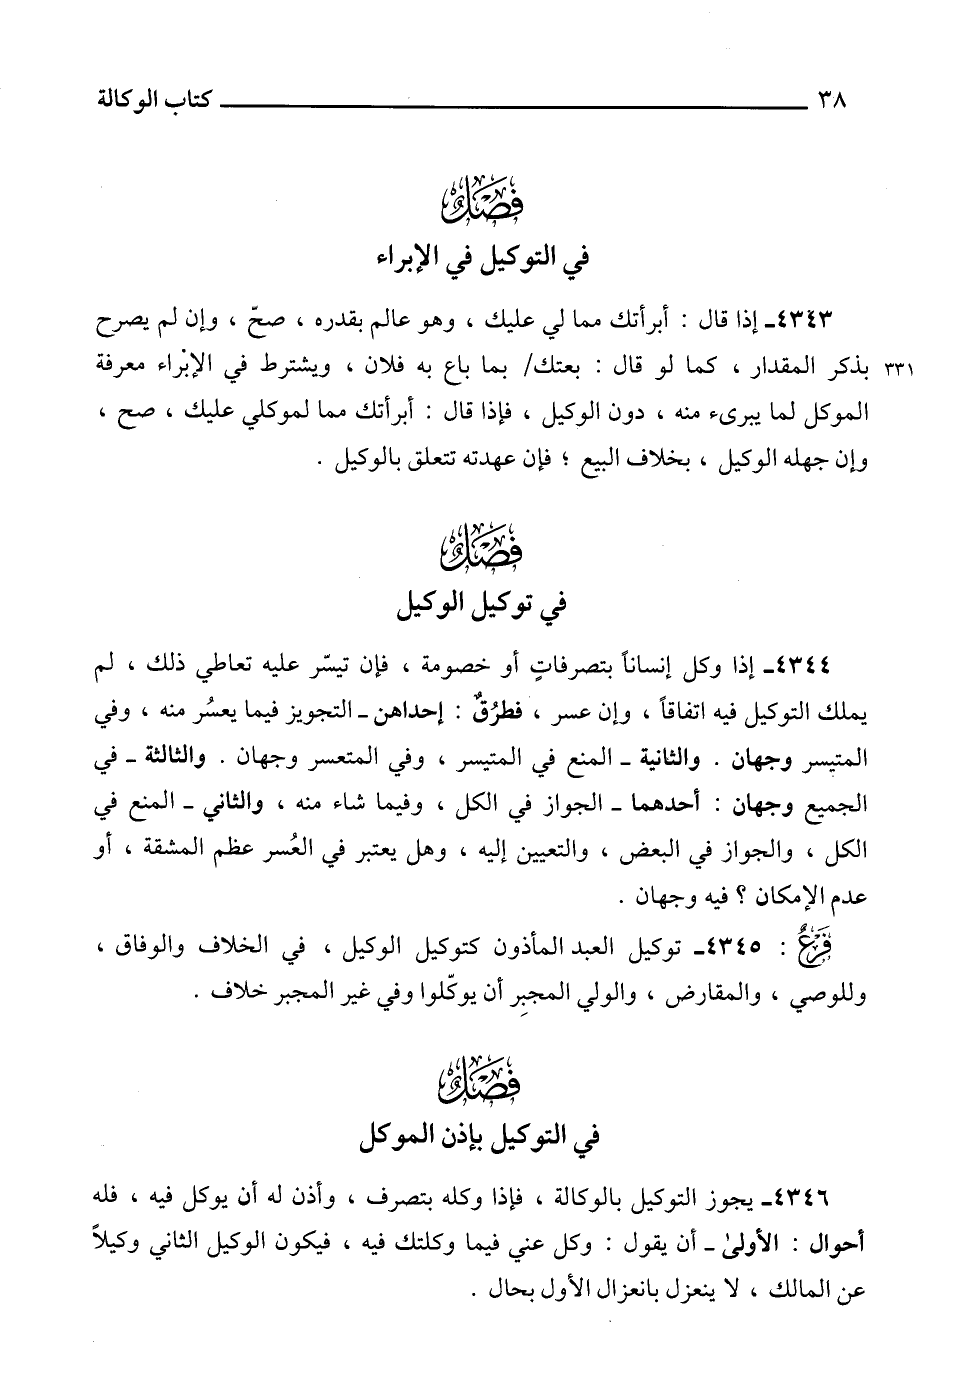 ٣٨ كتاب الوكالة
فصل
في التوكيل في الإبراء
٤٣٤٣ـ إذا قال : أبرأتك مما لي عليك ، وهو عالم بقدره ، صحّ ، وإن لم يصرح
٣٣١ بذكر المقدار ، كما لو قال : بعتك/ بما باع به فلان ، ويشترط في الإبْراء معرفة
الموكل لما يبرىء منه ، دون الوكيل ، فإذا قال : أبرأتك مما لموكلي عليك ، صح ،
وإن جهله الوكيل ، بخلاف البيع ؛ فإن عهدته تتعلق بالوكيل .
فصل
في توكيل الوكيل
٤٣٤٤ـ إذا وكل إنساناً بتصرفاتٍ أو خصومة ، فإن تيسّر عليه تعاطي ذلك ، لم
يملك التوكيل فيه اتفاقاً ، وإن عسر ، فطرُقٌ : إحداهن ـ التجويز فيما يعسُر منه ، وفي
المتيسر وجهان . والثانية ـ المنع في المتيسر ، وفي المتعسر وجهان . والثالثة ـ في
الجميع وجهان : أحدهما ـ الجواز في الكل ، وفيما شاء منه ، والثاني ـ المنع في
الكل ، والجواز في البعض ، والتعيين إليه ، وهل يعتبر في العُسر عظم المشقة ، أو
عدم الإمكان ؟ فيه وجهان .
فرعٌ : ٤٣٤٥ـ توكيل العبد المأذون كتوكيل الوكيل ، في الخلاف والوفاق ،
وللوصي ، والمقارض ، والولي المجبِر أن يوكّلوا وفي غير المجبر خلاف .
فصل
في التوكيل بإذن الموكل
٤٣٤٦ـ يجوز التوكيل بالوكالة ، فإذا وكله بتصرف ، وأذن له أن يوكل فيه ، فله
أحوال : الأولىٰ ـ أن يقول : وكل عني فيما وكلتك فيه ، فيكون الوكيل الثاني وكيلاً
عن المالك ، لا ينعزل بانعزال الأول بحال .